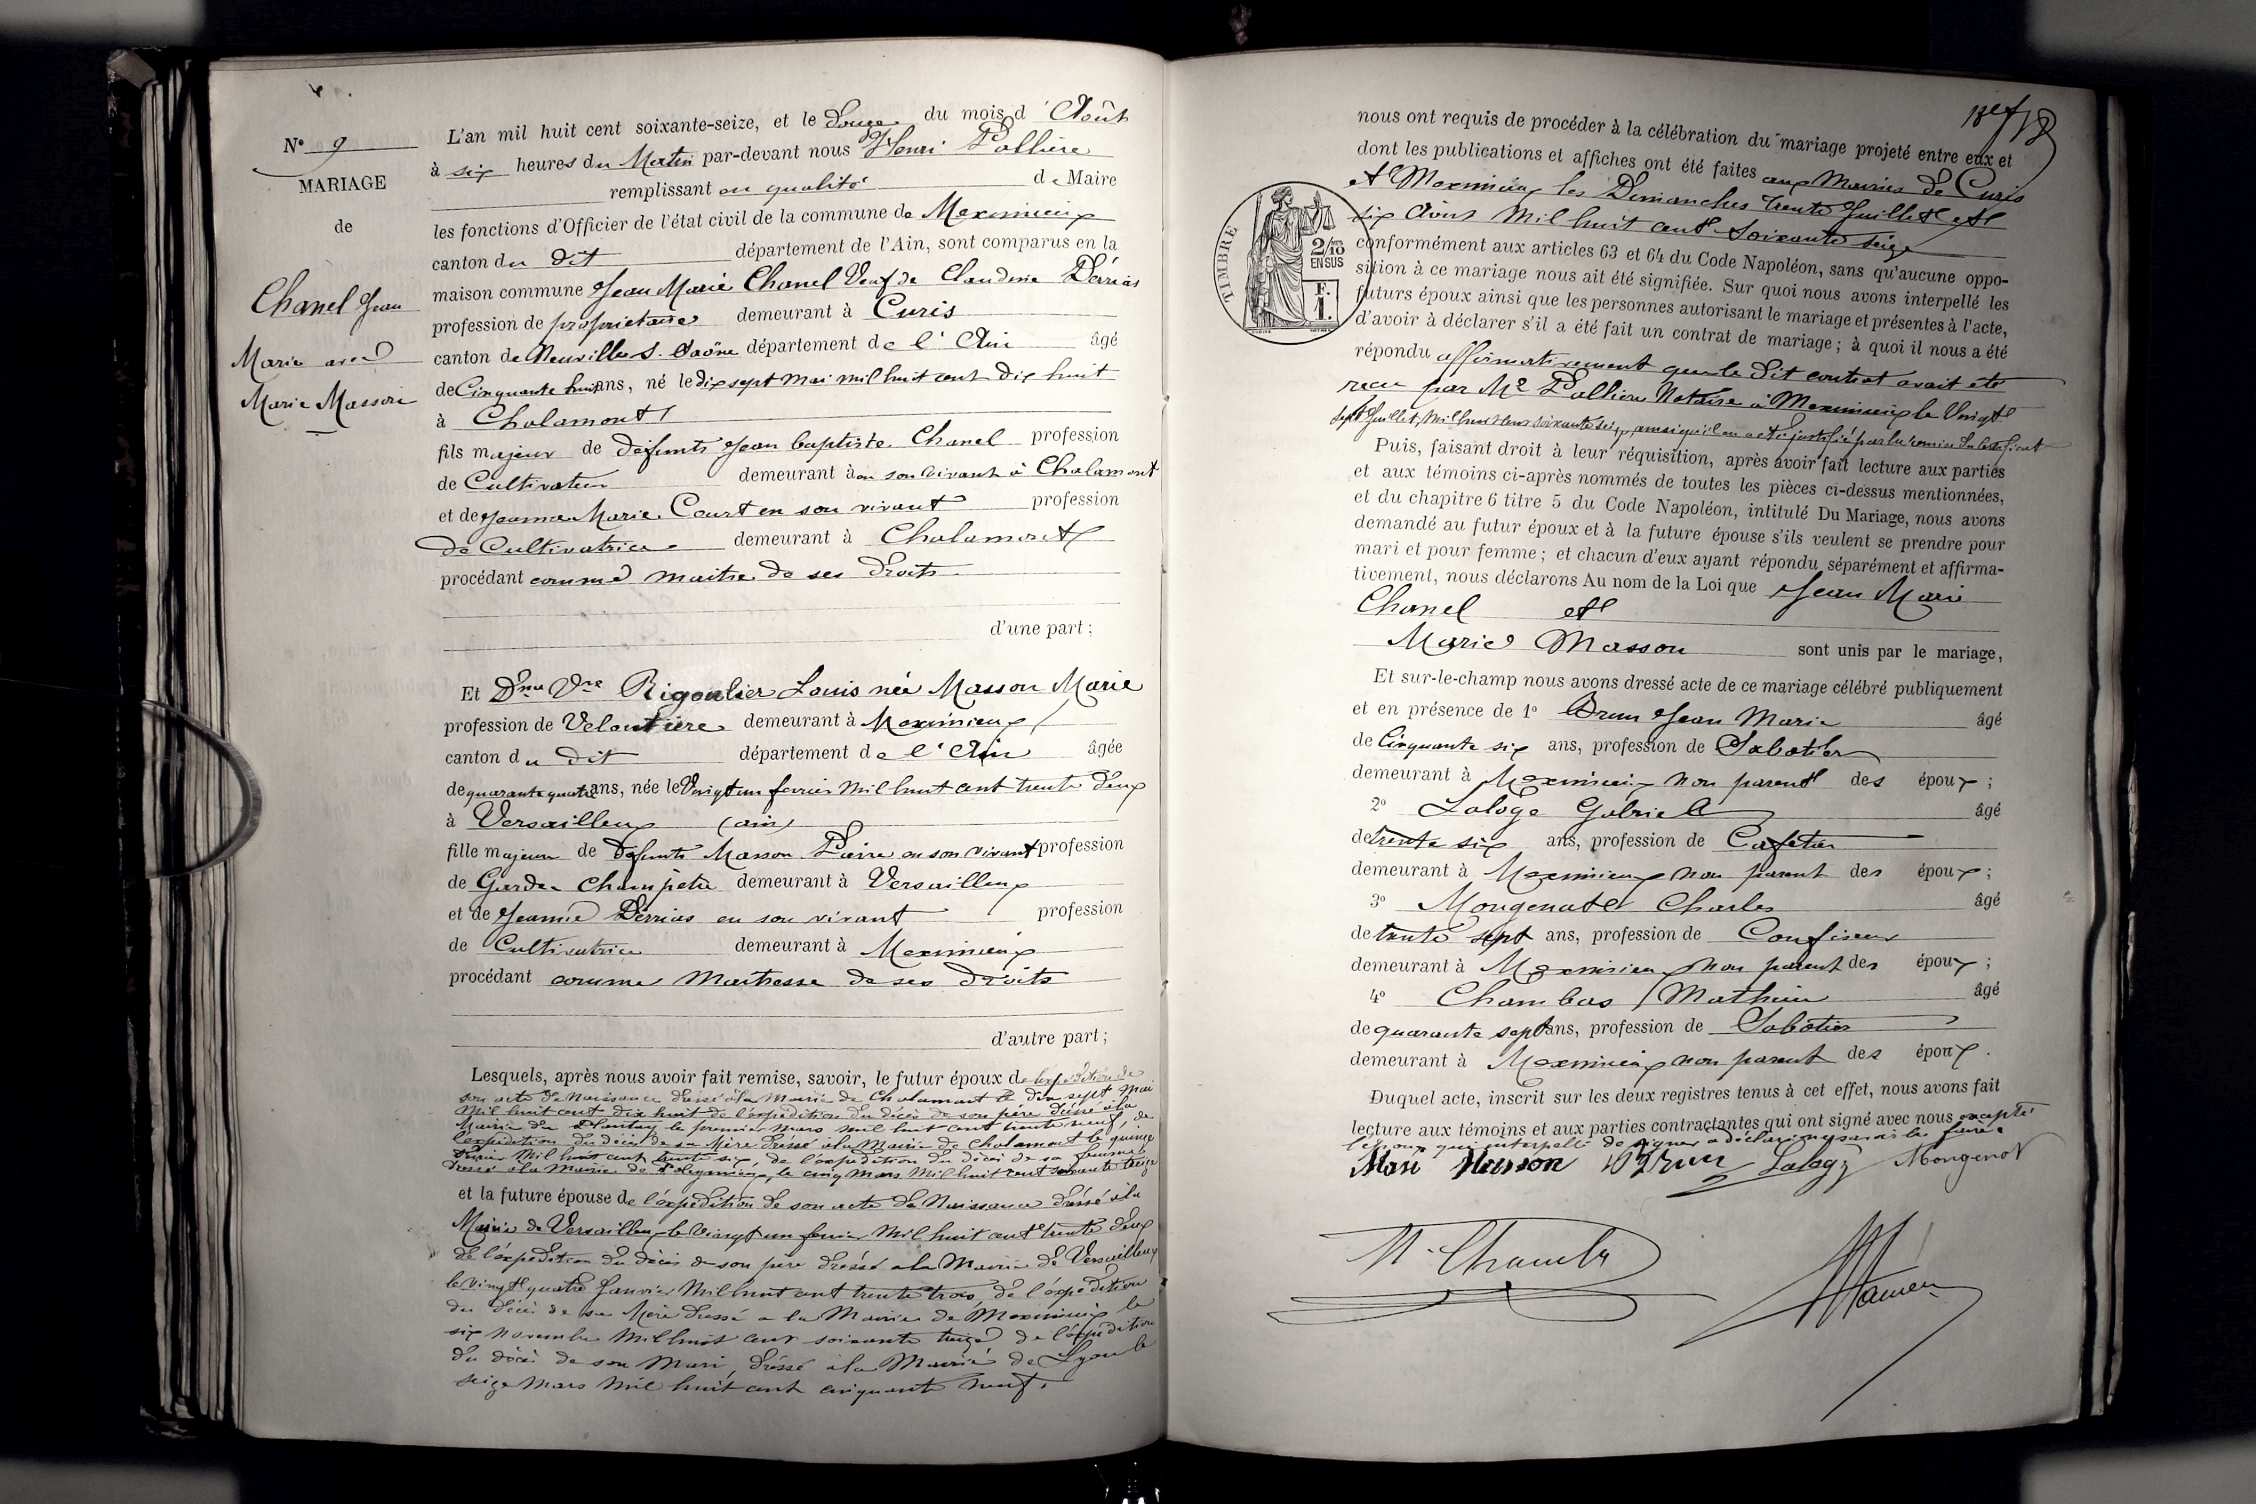 N° 9
MARIAGE
de
Chanel Jean
Marie avec
Marie Masson
L'an mil huit cent soixante-seize, et le Douze du mois d'Août
à six heures du Matin par-devant nous Henri Pallière
remplissant en qualité de Maire
les fonctions d'Officier de l'état civil de la commune de Meximieux
canton du dit département de l'Ain, sont comparus en la
maison commune Jean Marie Chanel Veuf de Claudine Perrias
profession de propriétaire demeurant à Curis
canton de Neuville s. Saône département de l'Ain âgé
de Cinquante huit ans, né le dix sept Mai mil huit cent dix huit
à Chalamont
fils majeur de défunts Jean baptiste Chanel profession
de Cultivateur demeurant à en son vivant à Chalamont
et de Jeanne Marie Court en son vivant profession
de Cultivatrice demeurant à Chalamont
procédant comme maitre de ses droits
d'une part;
Et Dme Vve Rigoulier Louis née Masson Marie
profession de Veloutière demeurant à Meximieux
canton du dit département de l'Ain âgée
de quarante quatre ans, née le Vingt un fevrier Mil huit cent trente deux
à Versailleux (ain)
fille majeure de Défunts Masson Pierre en son vivant profession
de Garde Champêtre demeurant à Versailleux
et de Jeanne Perrias en son vivant profession
de Cultivatrice demeurant à Meximieux
procédant comme Maitresse de ses Droits
d'autre part;
Lesquels, après nous avoir fait remise, savoir, le futur époux de l'expédition de
son acte de Naissance dressé à la Mairie de Chalamont le dix sept Mai
Mil huit cent dix huit de l'expédition du décès de son père dressé à la
Mairie du Plantay le premier Mars mil huit cent trente neuf, de
l'expédition du décès de sa Mère dressé à la Mairie de Chalamont le quinze
Mil huit cent trente six, de l'expédition du décès de sa femme
dressé à la Mairie de le cinq Mars Mil huit cent soixante treize
et la future épouse de l'expédition de son acte de Naissance dressé à la
Mairie de Versailleux le Vingt un fevrier Mil huit cent trente deux
de l'expédition du décès de son père dressé à la Mairie de Versailleux
le vingt quatre Janvier Mil huit cent trente trois, de l'expédition
du décès de sa Mère dressé à la Mairie de Meximieux le
six Novembre Mil huit cent soixante treize de l'expédition
du décès de son Mari, dressé à la Mairie de Lyon le
seize Mars Mil huit cent cinquante neuf.
nous ont requis de procéder à la célébration du mariage projeté entre eux et
dont les publications et affiches ont été faites aux Mairies de Curis
et Meximieux les Dimanches trente Juillet et
six Août Mil huit cent soixante seize
conformément aux articles 63 et 64 du Code Napoléon, sans qu'aucune oppo-
sition à ce mariage nous ait été signifiée. Sur quoi nous avons interpellé les
futurs époux ainsi que les personnes autorisant le mariage et présentes à l'acte,
d'avoir à déclarer s'il a été fait un contrat de mariage; à quoi il nous a été
répondu affirmativement que le dit contrat avait été
reçu par Me Pallière Notaire à Meximieux le Vingt
sept Juillet, Mil huit cent soixante seize, ainsi qu'il en a été justifié par la remise du certificat
TIMBRE
2/10
EN SUS
F.
1.
Puis, faisant droit à leur réquisition, après avoir fait lecture aux parties
et aux témoins ci-après nommés de toutes les pièces ci-dessus mentionnées,
et du chapitre 6 titre 5 du Code Napoléon, intitulé Du Mariage, nous avons
demandé au futur époux et à la future épouse s'ils veulent se prendre pour
mari et pour femme; et chacun d'eux ayant répondu séparément et affirma-
tivement, nous déclarons Au nom de la Loi que Jean Marie
Chanel et
Marie Masson sont unis par le mariage,
Et sur-le-champ nous avons dressé acte de ce mariage célébré publiquement
et en présence de 1° Brun Jean Marie âgé
de Cinquante six ans, profession de Sabotier
demeurant à Meximieux non parent des époux;
2° Laloge Gabriel âgé
de trente six ans, profession de Cafetier
demeurant à Meximieux non parent des époux;
3° Mougenot Charles âgé
de trente sept ans, profession de Confiseur
demeurant à Meximieux non parent des époux;
4° Chambas Mathieu âgé
de quarante sept ans, profession de Sabotier
demeurant à Meximieux non parent des époux.
Duquel acte, inscrit sur les deux registres tenus à cet effet, nous avons fait
lecture aux témoins et aux parties contractantes qui ont signé avec nous excepté
l'époux qui interpellé de signer a déclaré ne savoir le faire.
Mari Masson Brun Laloge Mougenot